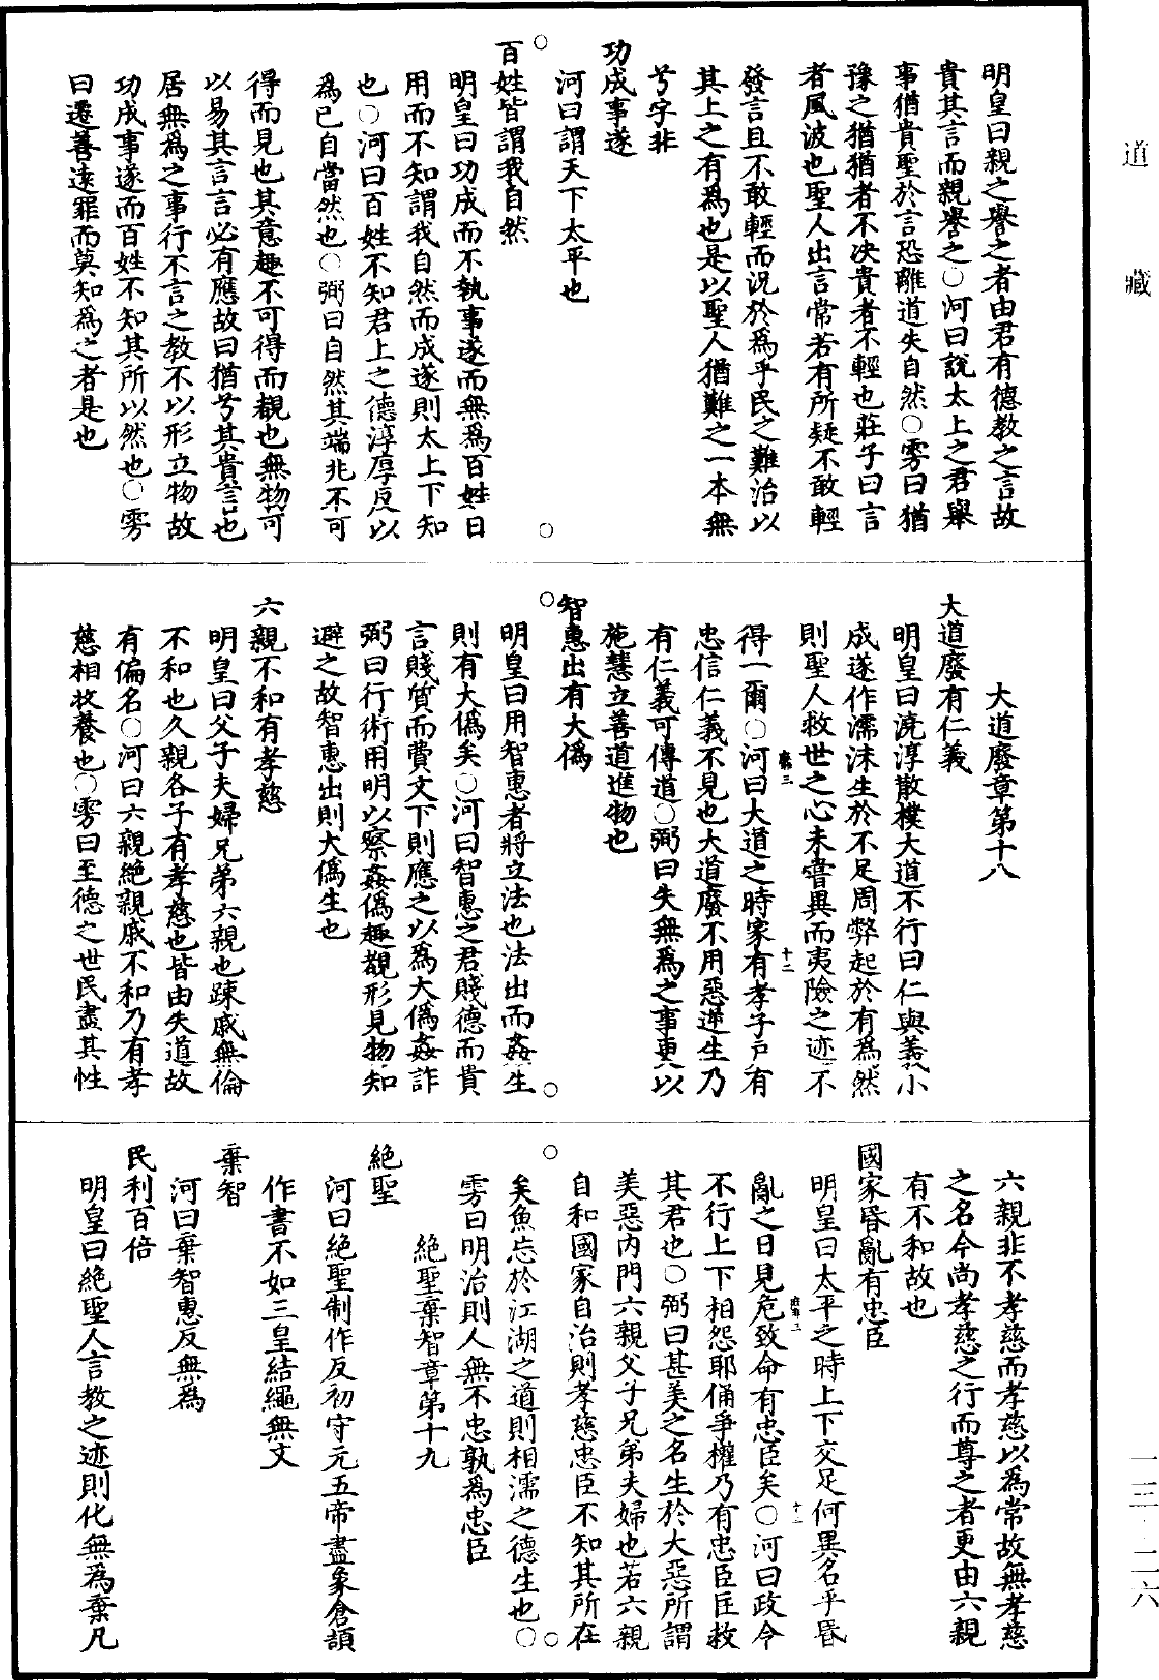 道藏
一三·二六
明皇曰親之譽之者由君有德教之言故
貴其言而親譽之○河曰說太上之君舉
事猶貴聖於言恐離道失自然○雱曰猶
豫之猶猶者不決貴者不輕也莊子曰言
者風波也聖人出言常若有所疑不敢輕
發言且不敢輕而況於為乎民之難治以
其上之有為也是以聖人猶難之一本無
兮字非
功成事遂
河曰謂天下太平也
○　○
百姓皆謂我自然
明皇曰功成而不執事遂而無為百姓日
用而不知謂我自然而成遂則太上下知
也○河曰百姓不知君上之德淳厚反以
為已自當然也○弼曰自然其端兆不可
得而見也其意趣不可得而覩也無物可
以易其言言必有應故曰猶兮其貴言也
居無為之事行不言之教不以形立物故
功成事遂而百姓不知其所以然也○雱
曰遷善遠罪而莫知為之者是也
大道廢章第十八
大道廢有仁義
明皇曰澆淳散樸大道不行曰仁與義小
成遂作濡沫生於不足周弊起於有為然
則聖人救世之心未嘗異而夷險之迹不
得一爾○河曰大道之時家有孝子戶有
忠信仁義不見也大道廢不用惡逆生乃
有仁義可傳道○弼曰失無為之事更以
施慧立善道進物也
智惠出有大偽
○　○
明皇曰用智惠者將立法也法出而姦生
則有大偽矣○河曰智惠之君賤德而貴
言賤質而費文下則應之以為大偽姦詐
弼曰行術用明以察姦偽趣覩形見物知
避之故智惠出則大偽生也
六親不和有孝慈
明皇曰父子夫婦兄弟六親也疎戚無倫
不和也久親各子有孝慈也皆由失道故
有偏名○河曰六親絕親戚不和乃有孝
慈相牧養也○雱曰至德之世民盡其性
六親非不孝慈而孝慈以為常故無孝慈
之名今尚孝慈之行而尊之者更由六親
有不和故也
國家昏亂有忠臣
明皇曰太平之時上下交足何異名乎昏
亂之日見危致命有忠臣矣○河曰政令
不行上下相怨耶俑爭權乃有忠臣匡救
其君也○弼曰甚美之名生於大惡所謂
美惡內門六親父子兄弟夫婦也若六親
自和國家自治則孝慈忠臣不知其所在
○　○
矣魚忘於江湖之道則相濡之德生也○
雱曰明治則人無不忠孰為忠臣
絕聖棄智章第十九
絕聖
河曰絕聖制作反初守元五帝盡象倉頡
作書不如三皇結繩無文
棄智
河曰棄智惠反無為
民利百倍
明皇曰絕聖人言教之迹則化無為棄凡